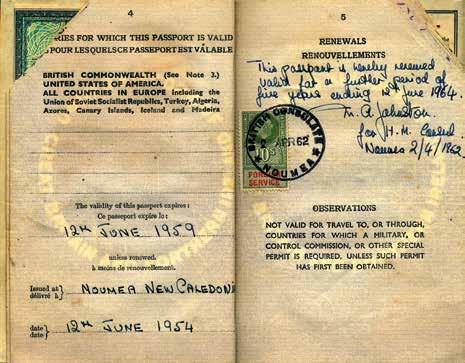 4
RIES FOR WHICH THIS PASSPORT IS VALID
POUR LESQUELS CE PASSEPORT EST VALABLE
BRITISH COMMONWEALTH (See Note 3.)
UNITED STATES OF AMERICA.
ALL COUNTRIES IN EUROPE including the
Union of Soviet Socialist Republics, Turkey, Algeria,
Azores, Canary Islands, Iceland and Madeira
The validity of this passport expires:
Ce passeport expire le:
12TH JUNE 1959
unless renewed.
à moins de renouvellement.
Issued at
délivré à
NOUMEA NEW CALEDONI
date
date
12TH JUNE 1954
5
RENEWALS
RENOUVELLEMENTS
This passport is hereby renewed
valid for a further period of
five years ending 12th June 1964.
M. A. Johnston.
for H.M. Consul
Noumea 2/4/1962.
BRITISH CONSULATE
2 APR 62
NOUMEA
10
FOREIGN
SERVICE
OBSERVATIONS
NOT VALID FOR TRAVEL TO, OR THROUGH,
COUNTRIES FOR WHICH A MILITARY, OR
CONTROL COMMISSION, OR OTHER SPECIAL
PERMIT IS REQUIRED, UNLESS SUCH PERMIT
HAS FIRST BEEN OBTAINED.